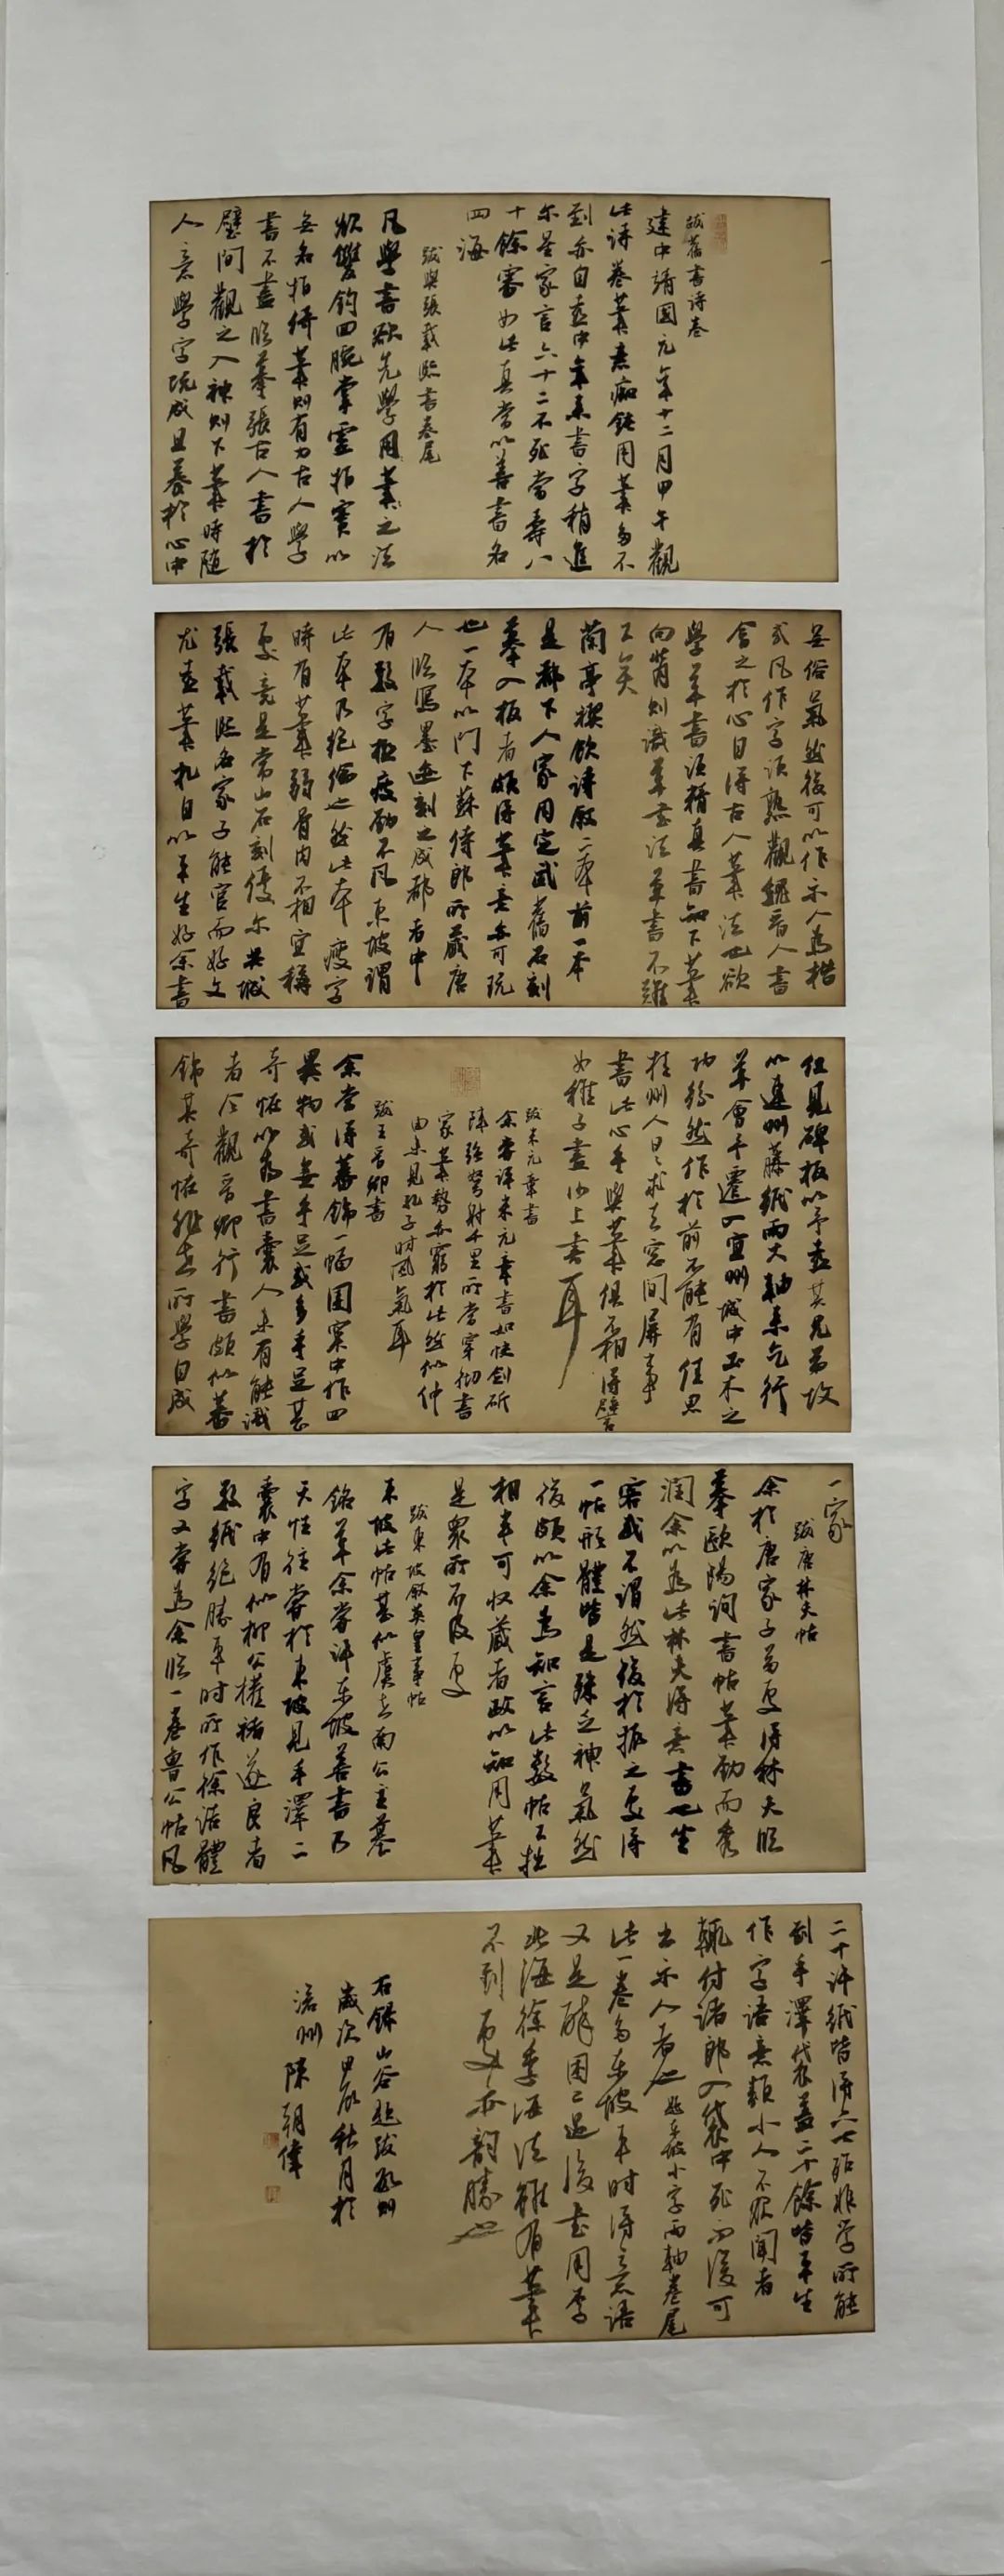 跋舊書詩卷
建中靖國元年十二月甲午觀
此詩卷筆意癡鈍用筆多不
到亦自喜中年來書字稍進
爾星家言六十二不死當壽八
十餘審如此真當以善書名
四海
跋與張載熙書卷尾
凡學書欲先學用筆之法
欲雙鉤回腕掌虛指實以
無名指倚筆則有力古人學
書不盡臨摹張古人書於
壁間觀之入神則下筆時隨
人意學字既成且養於心中
無俗氣然後可以作示人為楷
式凡作字須熟觀魏晉人書
會之於心自得古人筆法也欲
學草書須精真書知下筆
向背則識草書法草書不難
工矣
蘭亭禊飲詩敘二本前一本
是都下人家用定武舊石刻
摹入板者頗得筆意亦可玩
也一本以門下蘇侍郎所藏唐
人臨寫墨迹刻之成都者中
有數字極瘦勁不凡東坡謂
此本乃絕倫也然此本瘦字
時有筆弱骨肉不相宜稱
處竟是常山石刻優爾 吳城
張載熙名家子能官而好文
尤喜筆札自以平生好余書
但見碑板以予喜其兄弟故
以連州藤紙兩大軸來乞行
草會予遷入宜州城中土木之
功紛然作於前不能有佳思
桂州人日求去窓間屏事
書此心手與筆俱不相得譬
如稚子畫沙上書耳
跋米元章書
余嘗評米元章書如快劍斫
陣強弩射千里所當穿徹書
家筆勢亦窮於此然似仲
由未見孔子時風氣耳
跋王晉卿書
余嘗得蕃錦一幅團窠中作四
異物或無手足或多手足甚
奇怪以為書囊人未有能識
者今觀晉卿行書頗似蕃
錦其奇怪非世所學自成
一家
跋唐林夫帖
余於唐家子弟處得林夫臨
摹歐陽詢書帖筆勁而秀
潤余以為此林夫得意書也坐
客或不謂然後於振之處得
一帖形體皆是殊乏神氣然
後頗以余為知言此數帖工拙
相半可收藏者政以知用筆
是眾所不及處
跋東坡敘英皇事帖
東坡此帖甚似虞世南公主墓
銘草余嘗評東坡善書乃
天性往嘗於東坡見手澤二
囊中有似柳公權褚遂良者
數紙絕勝平時所作徐浩體
字又嘗為余臨一卷魯公帖凡
二十許紙皆得六七殆非學所能
到手澤袋蓋二十餘皆平生
作字語意類小人不欲聞者
輒付諸郎入袋中死而後可
出示人者
此一卷多東坡平時得意語
又是醉困已過後書用李
北海徐季海法雖有筆
不到處亦韻勝也
右錄山谷題跋數則
歲次甲辰秋月於
滄州 陳朝偉